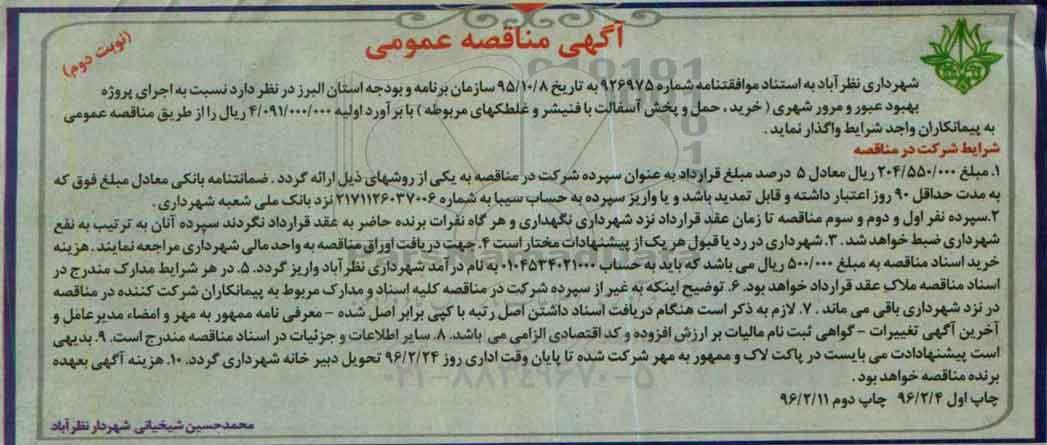 آگهی مناقصه عمومی
(نوبت دوم)
شهرداری نظرآباد به استناد موافقتنامه شماره ۹۲۶۹۷۵ به تاریخ ۹۵/۱۰/۸ سازمان برنامه و بودجه استان البرز در نظر دارد نسبت به اجرای پروژه
بهبود عبور و مرور شهری (خرید، حمل و پخش آسفالت با فنیشر و غلطکهای مربوطه) با برآورد اولیه ۴/۰۹۱/۰۰۰/۰۰۰ ریال را از طریق مناقصه عمومی
به پیمانکاران واجد شرایط واگذار نماید.
شرایط شرکت در مناقصه
۱. مبلغ ۲۰۴/۵۵۰/۰۰۰ ریال معادل ۵ درصد مبلغ قرارداد به عنوان سپرده شرکت در مناقصه به یکی از روشهای ذیل ارائه گردد. ضمانتنامه بانکی معادل مبلغ فوق که
به مدت حداقل ۹۰ روز اعتبار داشته و قابل تمدید باشد و یا واریز سپرده به حساب سیبا به شماره ۲۱۷۱۱۲۶۰۳۷۰۰۶ نزد بانک ملی شعبه شهرداری.
۲.سپرده نفر اول و دوم و سوم مناقصه تا زمان عقد قرارداد نزد شهرداری نگهداری و هر گاه نفرات برنده حاضر به عقد قرارداد نگردند سپرده آنان به ترتیب به نفع
شهرداری ضبط خواهد شد. ۳.شهرداری در رد یا قبول هر یک از پیشنهادات مختار است ۴. جهت دریافت اوراق مناقصه به واحد مالی شهرداری مراجعه نمایند. هزینه
خرید اسناد مناقصه به مبلغ ۵۰۰/۰۰۰ ریال می باشد که باید به حساب ۰۱۰۴۵۳۴۰۲۱۰۰۰ به نام درآمد شهرداری نظرآباد واریز گردد. ۵. در هر شرایط مدارک مندرج در
اسناد مناقصه ملاک عقد قرارداد خواهد بود. ۶. توضیح اینکه به غیر از سپرده شرکت در مناقصه کلیه اسناد و مدارک مربوط به پیمانکاران شرکت کننده در مناقصه
در نزد شهرداری باقی می ماند. ۷. لازم به ذکر است هنگام دریافت اسناد داشتن اصل رتبه با کپی برابر اصل شده - معرفی نامه ممهور به مهر و امضاء مدیرعامل و
آخرین آگهی تغییرات - گواهی ثبت نام مالیات بر ارزش افزوده و کد اقتصادی الزامی می باشد. ۸. سایر اطلاعات و جزئیات در اسناد مناقصه مندرج است. ۹. بدیهی
است پیشنهادادت می بایست در پاکت لاک و ممهور به مهر شرکت شده تا پایان وقت اداری روز ۹۶/۲/۲۴ تحویل دبیر خانه شهرداری گردد. ۱۰. هزینه آگهی بعهده
برنده مناقصه خواهد بود.
چاپ اول ۹۶/۲/۴ چاپ دوم ۹۶/۲/۱۱
محمدحسین شیخیانی شهردار نظرآباد
ParsNamadData
۰۲۱-۸۸۳۴۹۶۷۰-۵